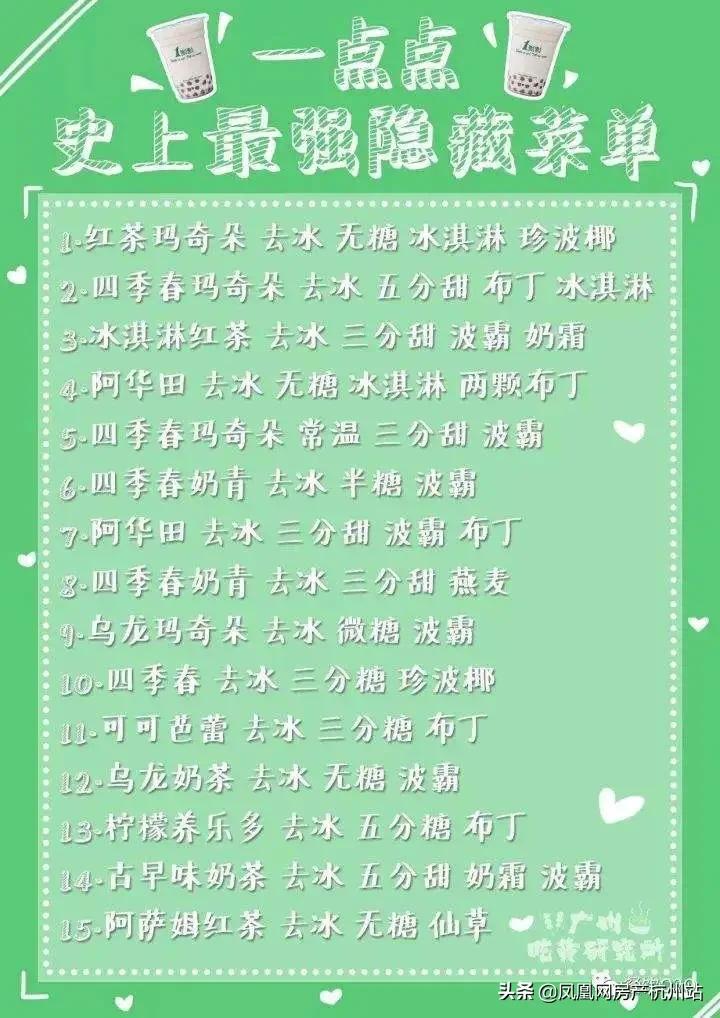 一点点
史上最强隐藏菜单
1.红茶玛奇朵 去冰 无糖 冰淇淋 珍波椰
2.四季春玛奇朵 去冰 五分甜 布丁 冰淇淋
3.冰淇淋红茶 去冰 三分甜 波霸 奶霜
4.阿华田 去冰 无糖 冰淇淋 两颗布丁
5.四季春玛奇朵 常温 三分甜 波霸
6.四季春奶青 去冰 半糖 波霸
7.阿华田 去冰 三分甜 波霸 布丁
8.四季春奶青 去冰 三分甜 燕麦
9.乌龙玛奇朵 去冰 微糖 波霸
10.四季春 去冰 三分糖 珍波椰
11.可可芭蕾 去冰 三分糖 布丁
12.乌龙奶茶 去冰 无糖 波霸
13.柠檬养乐多 去冰 五分糖 布丁
14.古早味奶茶 去冰 五分甜 奶霜 波霸
15.阿萨姆红茶 去冰 无糖 仙草
广州
吃货研究所
头条 @凤凰网房产杭州站